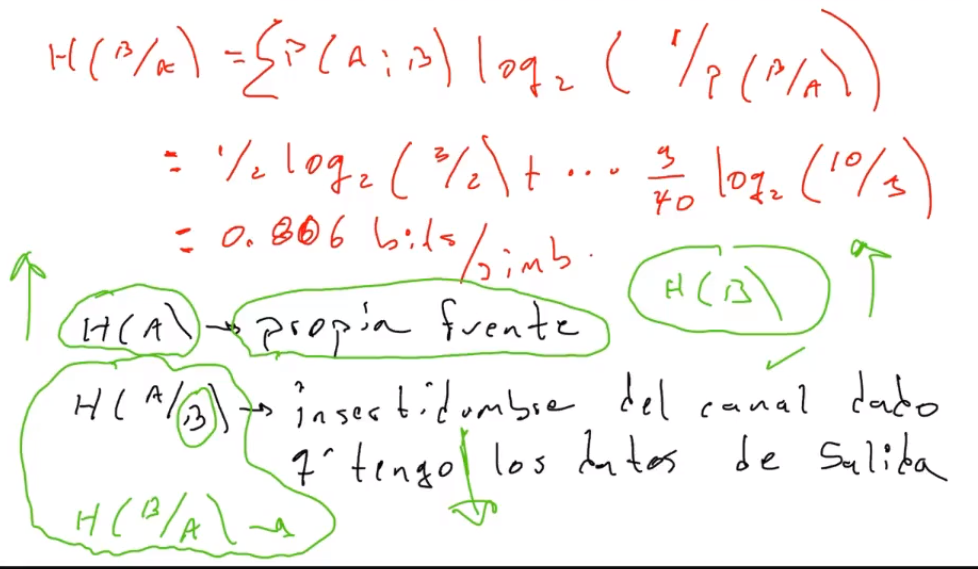 H(B/A) = Σ P(A;B) log₂ (1/P(B/A))
= 1/2 log₂ (3/2) + ... 3/40 log₂ (10/3)
= 0.806 bits/simb.
H(B)
H(A) → propia fuente
H(A/B) → insertidumbre del canal dado
q' tengo los datos de Salida
H(B/A) →